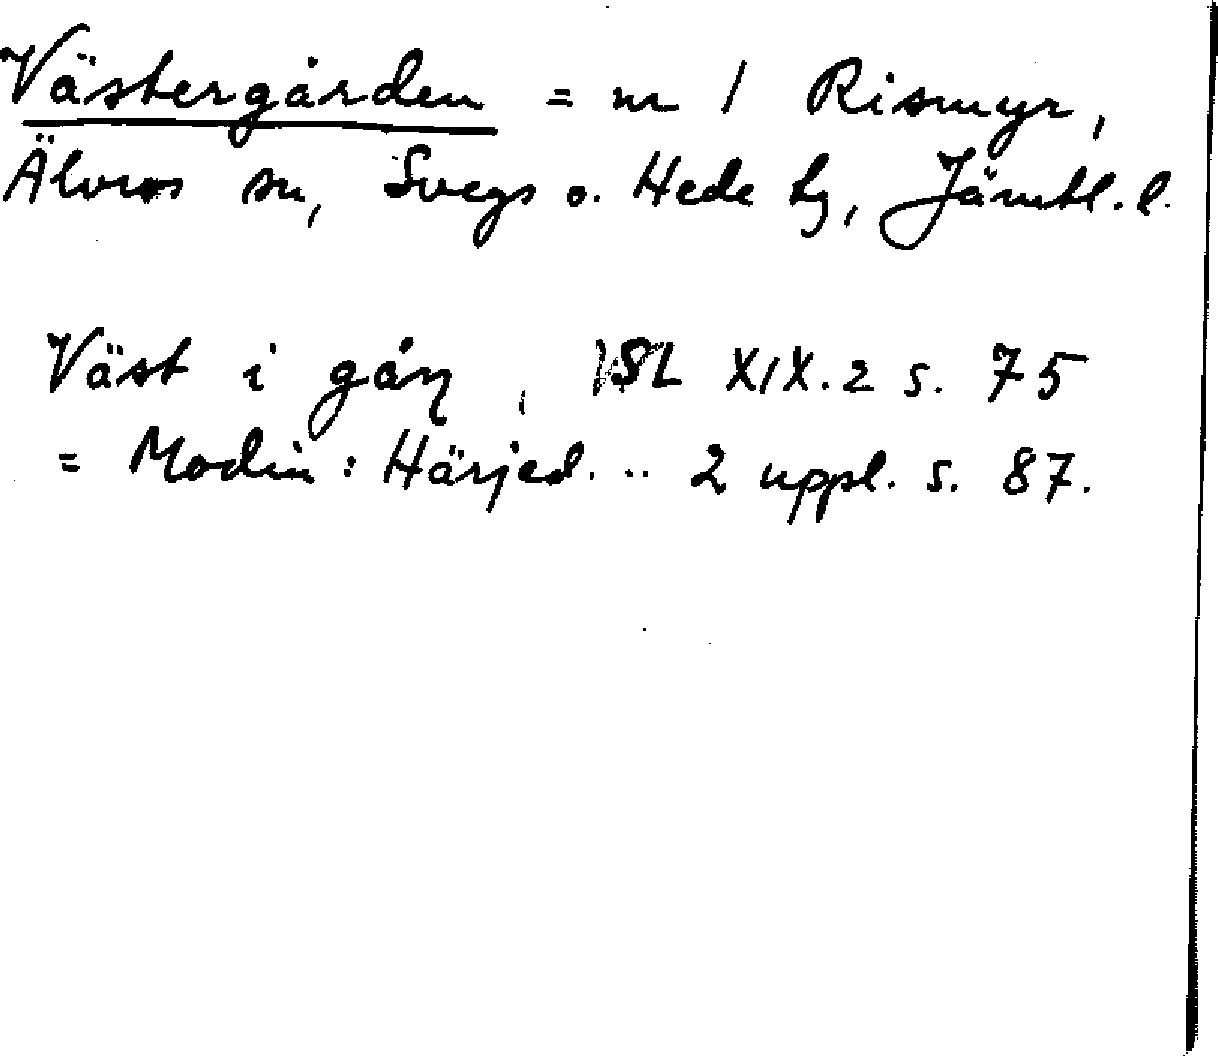 Västergården = nr 1 Rismyr,
Älvros sn, Svegs o. Hede tg, Jämtl. l.
Väst i gåɳ, SL XIX.2 s. 75
= Modin: Härjed. .. 2 uppl. s. 87.